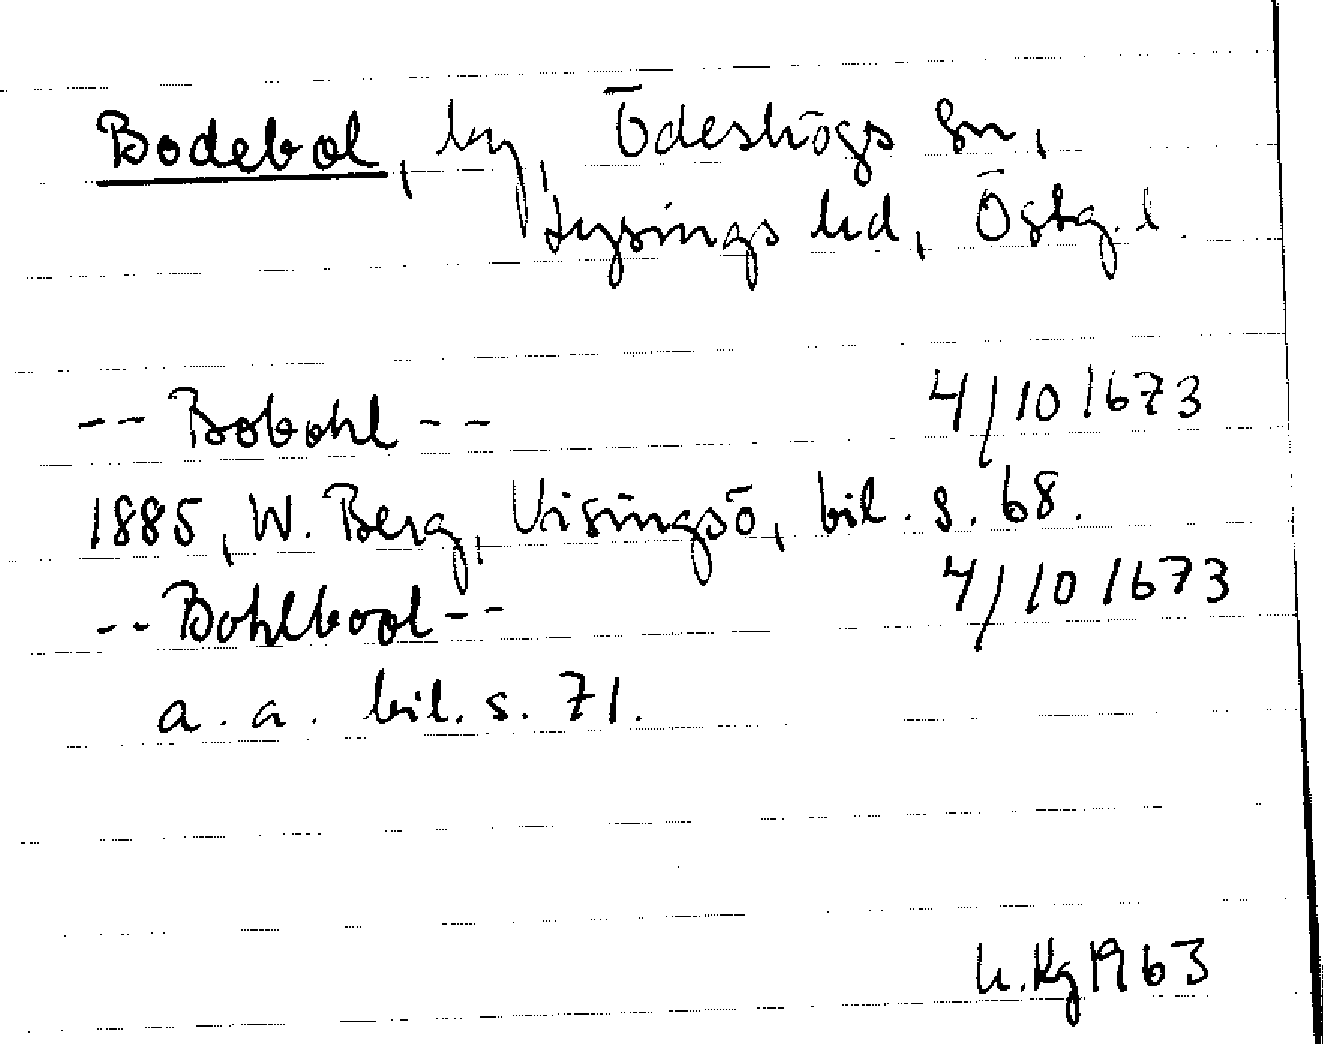 Bodebol, by, Ödeshögs sn,
Lysings hd, Östg. l.
-- Bobohl -- 4/10 1673
1885, W. Berg, Visingsö, bil. s. 68.
-- Bohlbool -- 4/10 1673
a. a. bil. s. 71.
1963